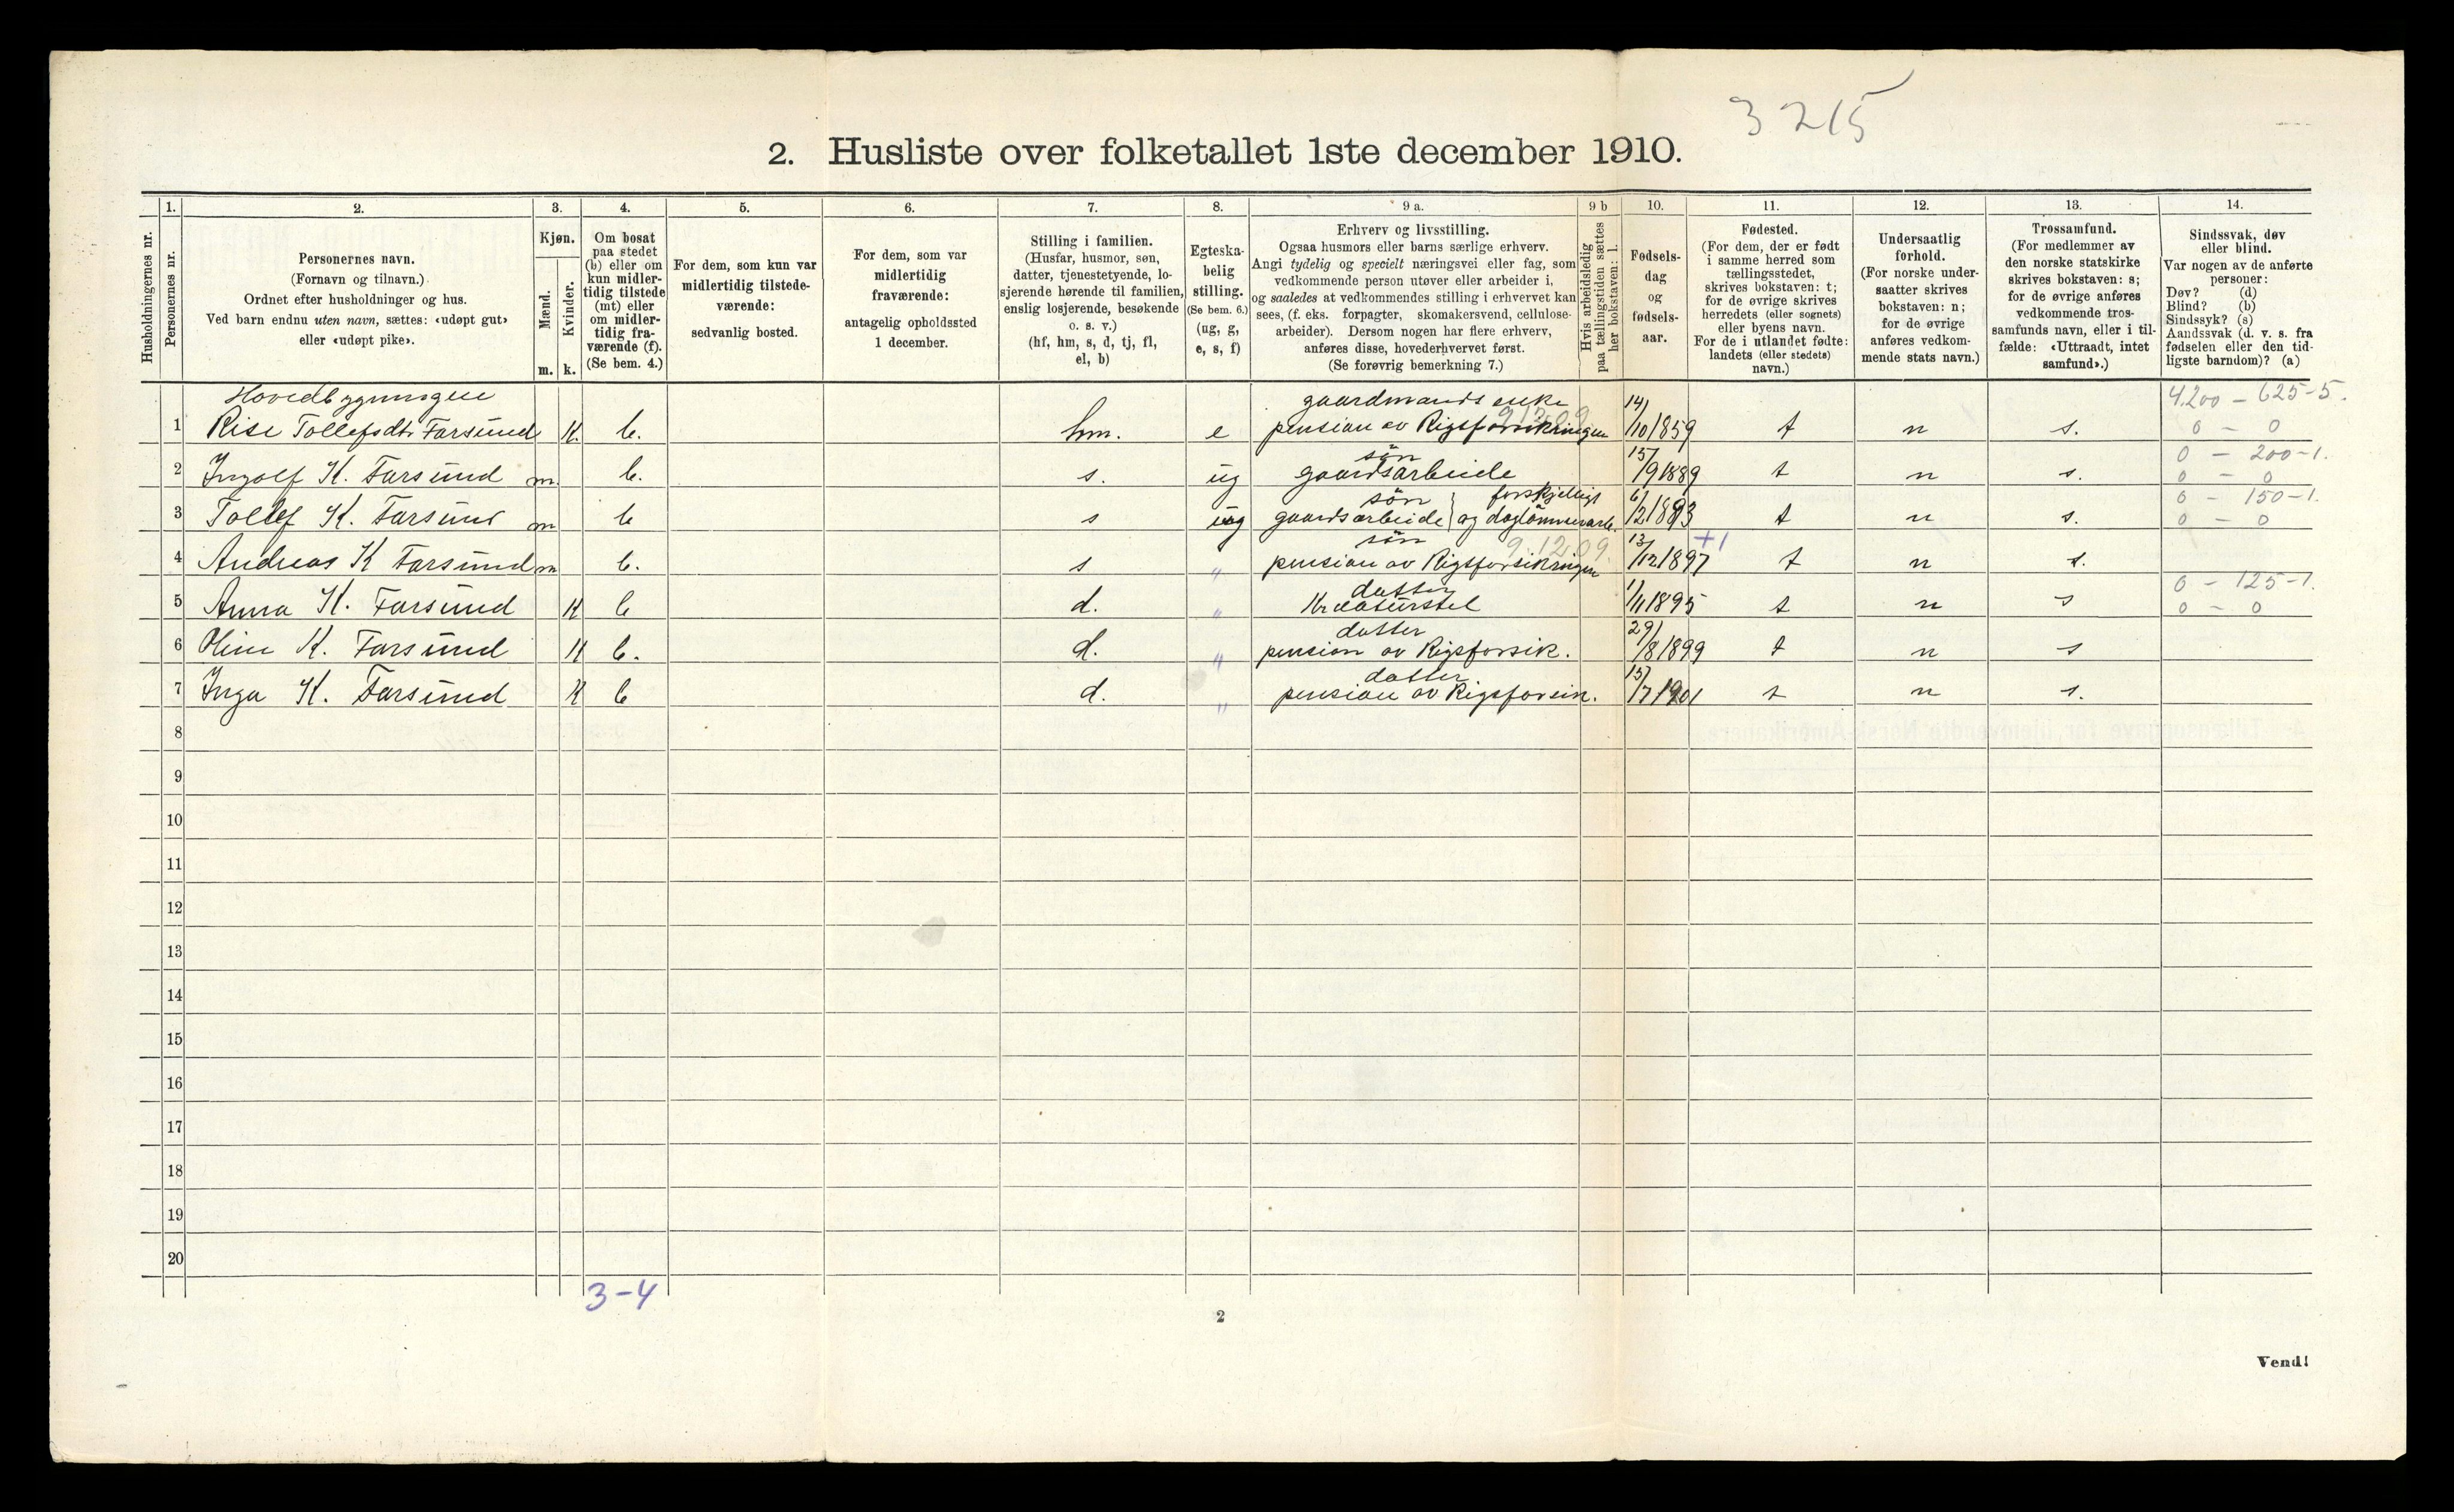 3215
2. Husliste over folketallet 1ste december 1910.
Husholdningernes nr.
1.
Personernes nr.
2.
Personernes navn.
(Fornavn og tilnavn.)
Ordnet efter husholdninger og hus.
Ved barn endnu uten navn, sættes: «udøpt gut»
eller «udøpt pike».
3.
Kjøn.
Mænd.
Kvinder.
m. k.
4.
Om bosat
paa stedet
(b) eller om
kun midler-
tidig tilstede
(mt) eller
om midler-
tidig fra-
værende (f).
(Se bem. 4.)
5.
For dem, som kun var
midlertidig tilstede-
værende:
sedvanlig bosted.
6.
For dem, som var
midlertidig
fraværende:
antagelig opholdssted
1 december.
7.
Stilling i familien.
(Husfar, husmor, søn,
datter, tjenestetyende, lo-
sjerende hørende til familien,
enslig losjerende, besøkende
o. s. v.)
(hf, hm, s, d, tj, fl,
el, b)
8.
Egteska-
belig
stilling.
(Se bem. 6.)
(ug, g,
e, s, f)
9 a.
Erhverv og livsstilling.
Ogsaa husmors eller barns særlige erhverv.
Angi tydelig og specielt næringsvei eller fag, som
vedkommende person utøver eller arbeider i,
og saaledes at vedkommendes stilling i erhvervet kan
sees, (f. eks. forpagter, skomakersvend, cellulose-
arbeider). Dersom nogen har flere erhverv,
anføres disse, hovederhvervet først.
(Se forøvrig bemerkning 7.)
9 b
Hvis arbeidsledig
paa tællingstiden sættes
her bokstaven: l.
10.
Fødsels-
dag
og
fødsels-
aar.
11.
Fødested.
(For dem, der er født
i samme herred som
tællingsstedet,
skrives bokstaven: t;
for de øvrige skrives
herredets (eller sognets)
eller byens navn.
For de i utlandet fødte:
landets (eller stedets)
navn.)
12.
Undersaatlig
forhold.
(For norske under-
saatter skrives
bokstaven: n;
for de øvrige
anføres vedkom-
mende stats navn.)
13.
Trossamfund.
(For medlemmer av
den norske statskirke
skrives bokstaven: s;
for de øvrige anføres
vedkommende tros-
samfunds navn, eller i til-
fælde: «Uttraadt, intet
samfund».)
14.
Sindssvak, døv
eller blind.
Var nogen av de anførte
personer:
Døv? (d)
Blind? (b)
Sindssyk? (s)
Aandssvak (d. v. s. fra
fødselen eller den tid-
ligste barndom)? (a)
Hovedbygningen gaardmands enke 4200 - 625-5.
1 Rise Tollefsdtr Farsund K. b. hm. e pension av Rigsforsikringen 9.12.09 14/10 1859 t n s. 0 - 0
søn 0 - 200-1.
2 Ingolf K. Farsund m. b. s. ug gaardsarbeide 15/9 1889 t n s. 0 - 0
søn forskjelligt 0 - 150-1.
3 Tollef K. Farsund m b s ug gaardsarbeide og daglønnerarb. 6/2 1893 t n s. 0 - 0
søn 9.12.09. +1
4 Andreas K Farsund m b. s " pension av Rigsforsikringen 13/12 1897 t n s.
datter 0 - 125-1.
5 Anna K. Farsund K b d. " Kreaturstel 1/11 1895 t n s 0 - 0
datter
6 Oline K. Farsund K b. d. " pension av Rigsforsik. 29/8 1899 t n s
datter
7 Inga K. Farsund K b d. " pension av Rigsforsik. 15/7 1901 t n s.
8
9
10
11
12
13
14
15
16
17
18
19
20
3-4
2
Vend!